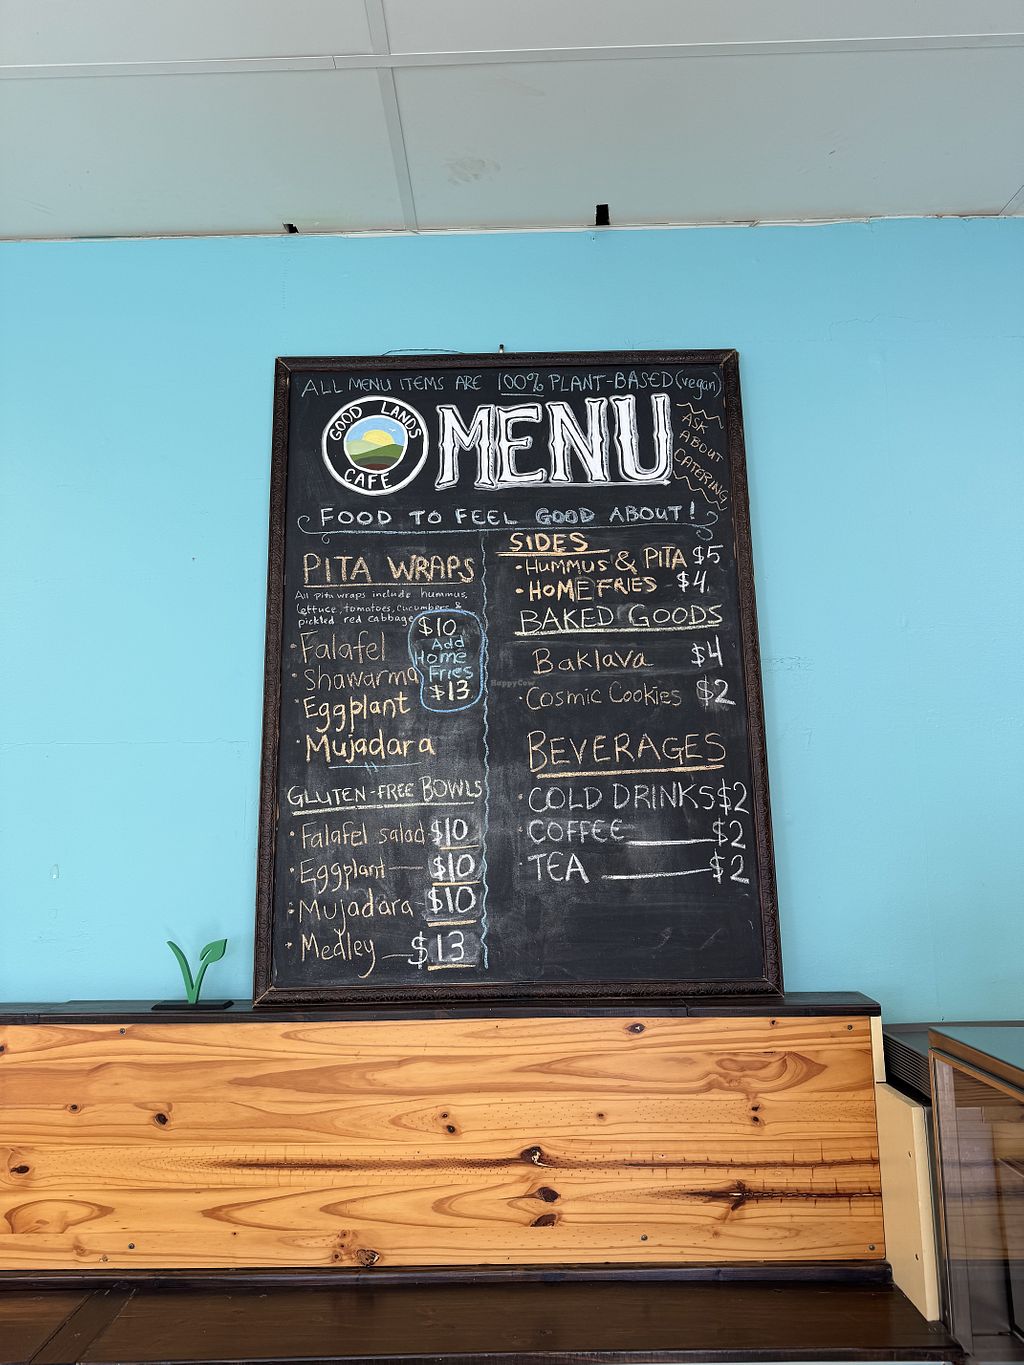 ALL MENU ITEMS ARE 100% PLANT-BASED (vegan)
GOOD LANDS
CAFE
MENU
ASK
ABOUT
CATERING
FOOD TO FEEL GOOD ABOUT!
PITA WRAPS
All pita wraps include hummus,
lettuce, tomatoes, cucumbers &
pickled red cabbage
• Falafel
• Shawarma
• Eggplant
• Mujadara
$10
Add
Home
Fries
$13
GLUTEN-FREE BOWLS
• Falafel salad $10
• Eggplant $10
• Mujadara $10
• Medley $13
SIDES
• HUMMUS & PITA $5
• HOME FRIES $4
BAKED GOODS
Baklava $4
• COSMIC COOKIES $2
BEVERAGES
• COLD DRINKS $2
• COFFEE $2
• TEA $2
HappyCow